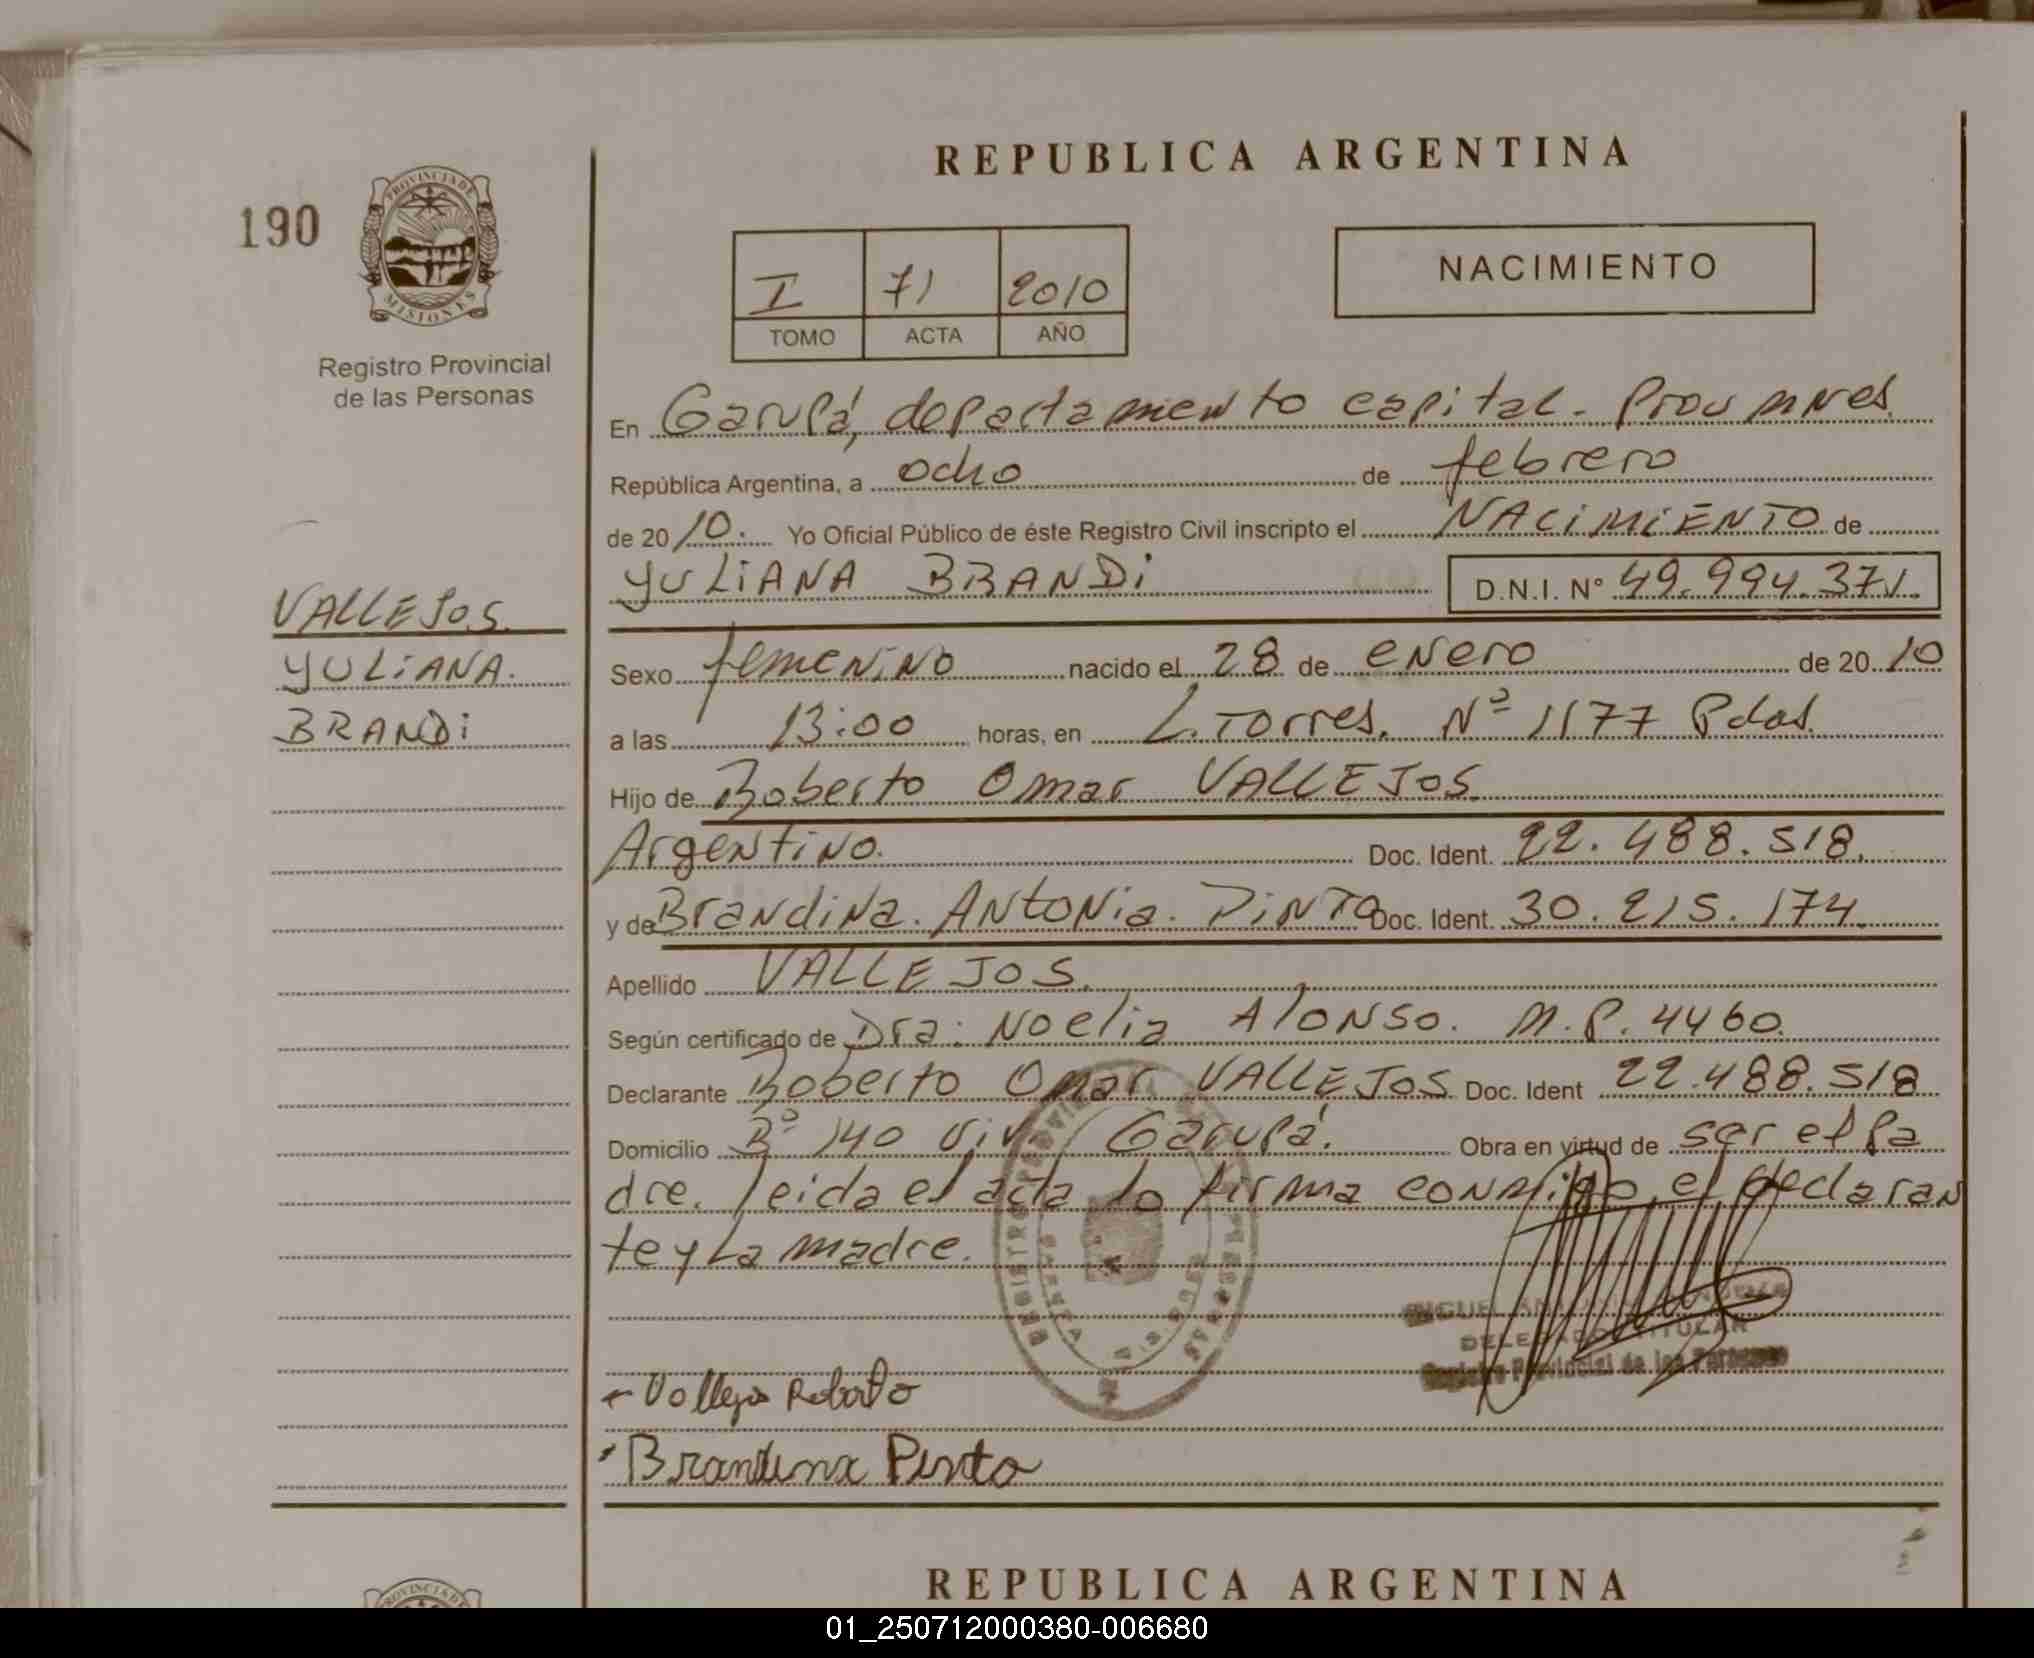 REPUBLICA ARGENTINA
190
PROVINCIA DE
MISIONES
Registro Provincial
de las Personas
I 71 2010
TOMO ACTA AÑO
NACIMIENTO
En Garupá, departamento capital - Prov mnes
República Argentina, a ocho de febrero
de 2010. Yo Oficial Público de éste Registro Civil inscripto el NACIMIENTO de
YULIANA BRANDI D.N.I. N° 49.994.371.
VALLEJOS.
YULIANA.
BRANDI
Sexo femenino nacido el 28 de enero de 2010
a las 13:00 horas, en L. Torres. Nº 1177 Pdas.
Hijo de Roberto Omar VALLEJOS.
Argentino. Doc. Ident. 22.488.518.
y de Brandina. Antonia. PINTO Doc. Ident. 30.215.174.
Apellido VALLEJOS.
Según certificado de Dra: Noelia Alonso. M.P. 4460.
Declarante Roberto Omar VALLEJOS Doc. Ident 22.488.518
Domicilio Bº 140 viv Garupá. Obra en virtud de ser el Pa
dre. leida el acta lo firma conmigo, el declaran
te y La madre.
DELEGADO TITULAR
Registro Provincial de las Personas
Vallejos Roberto
Brandina Pinto
REPUBLICA ARGENTINA
PROVINCIA DE
01_250712000380-006680